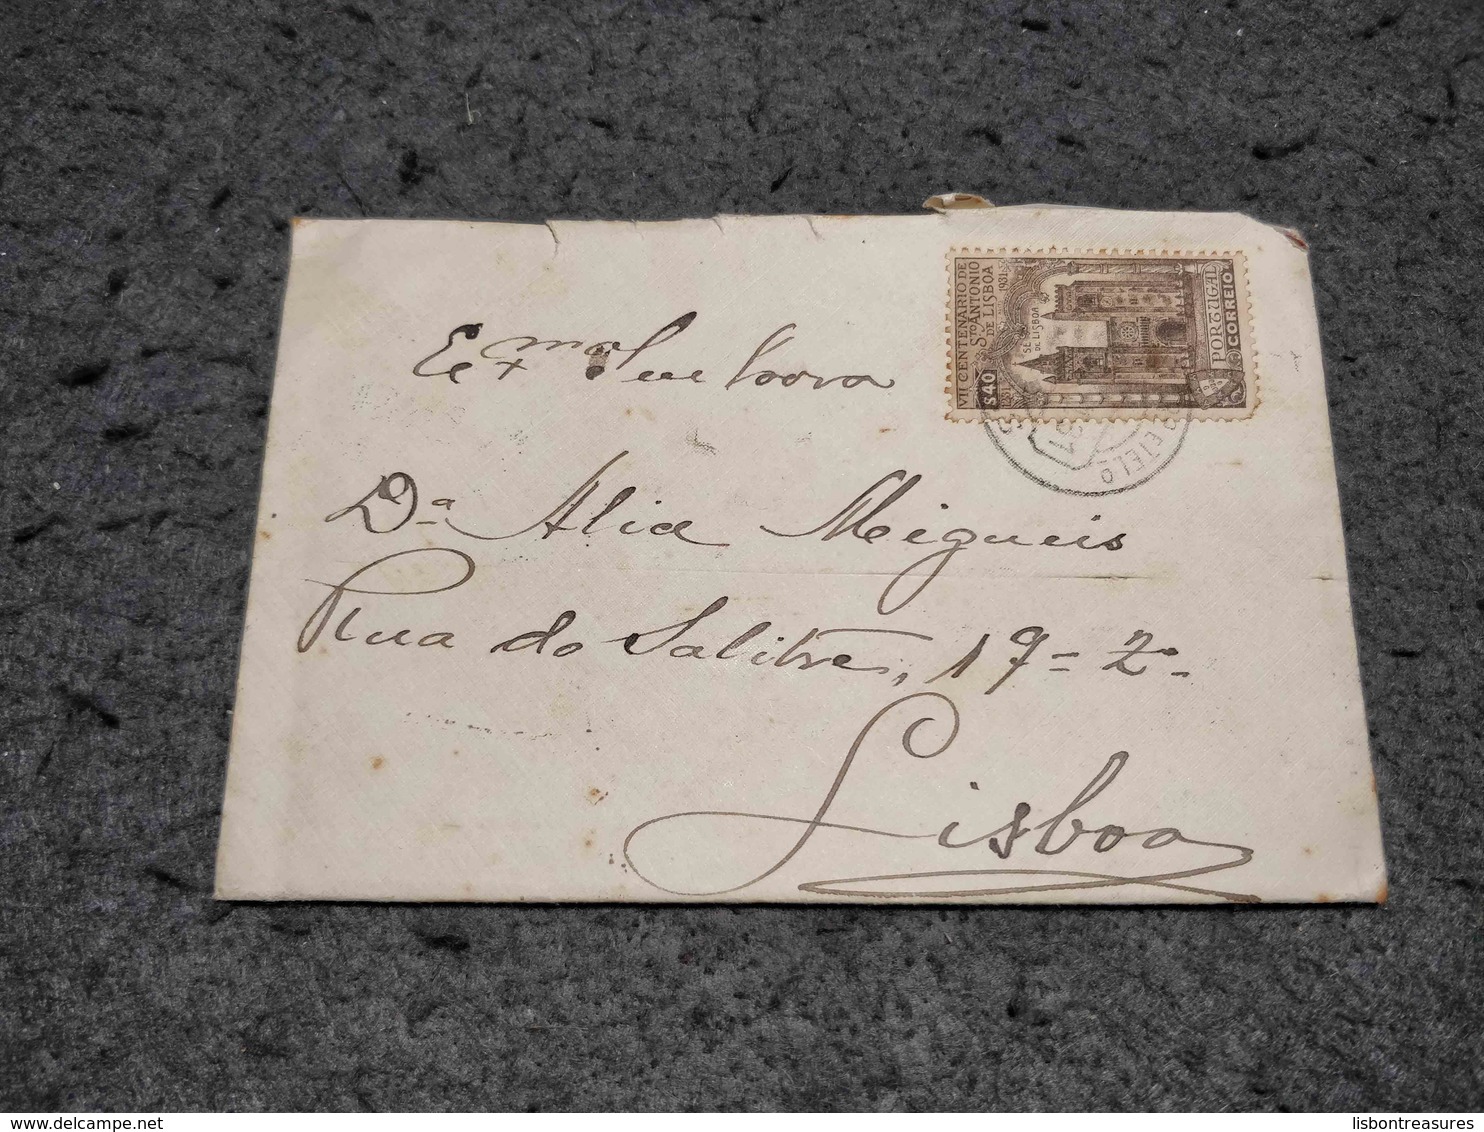 VII CENTENARIO DE
STO ANTONIO
DE LISBOA
1231 1931
SE
DE LISBOA
$40
PORTUGAL
CORREIO
Exma Senhora
Da Alia Migueis
Rua do Salitre, 17=2o-
Lisboa
delcampe.net
lisbontreasures.com